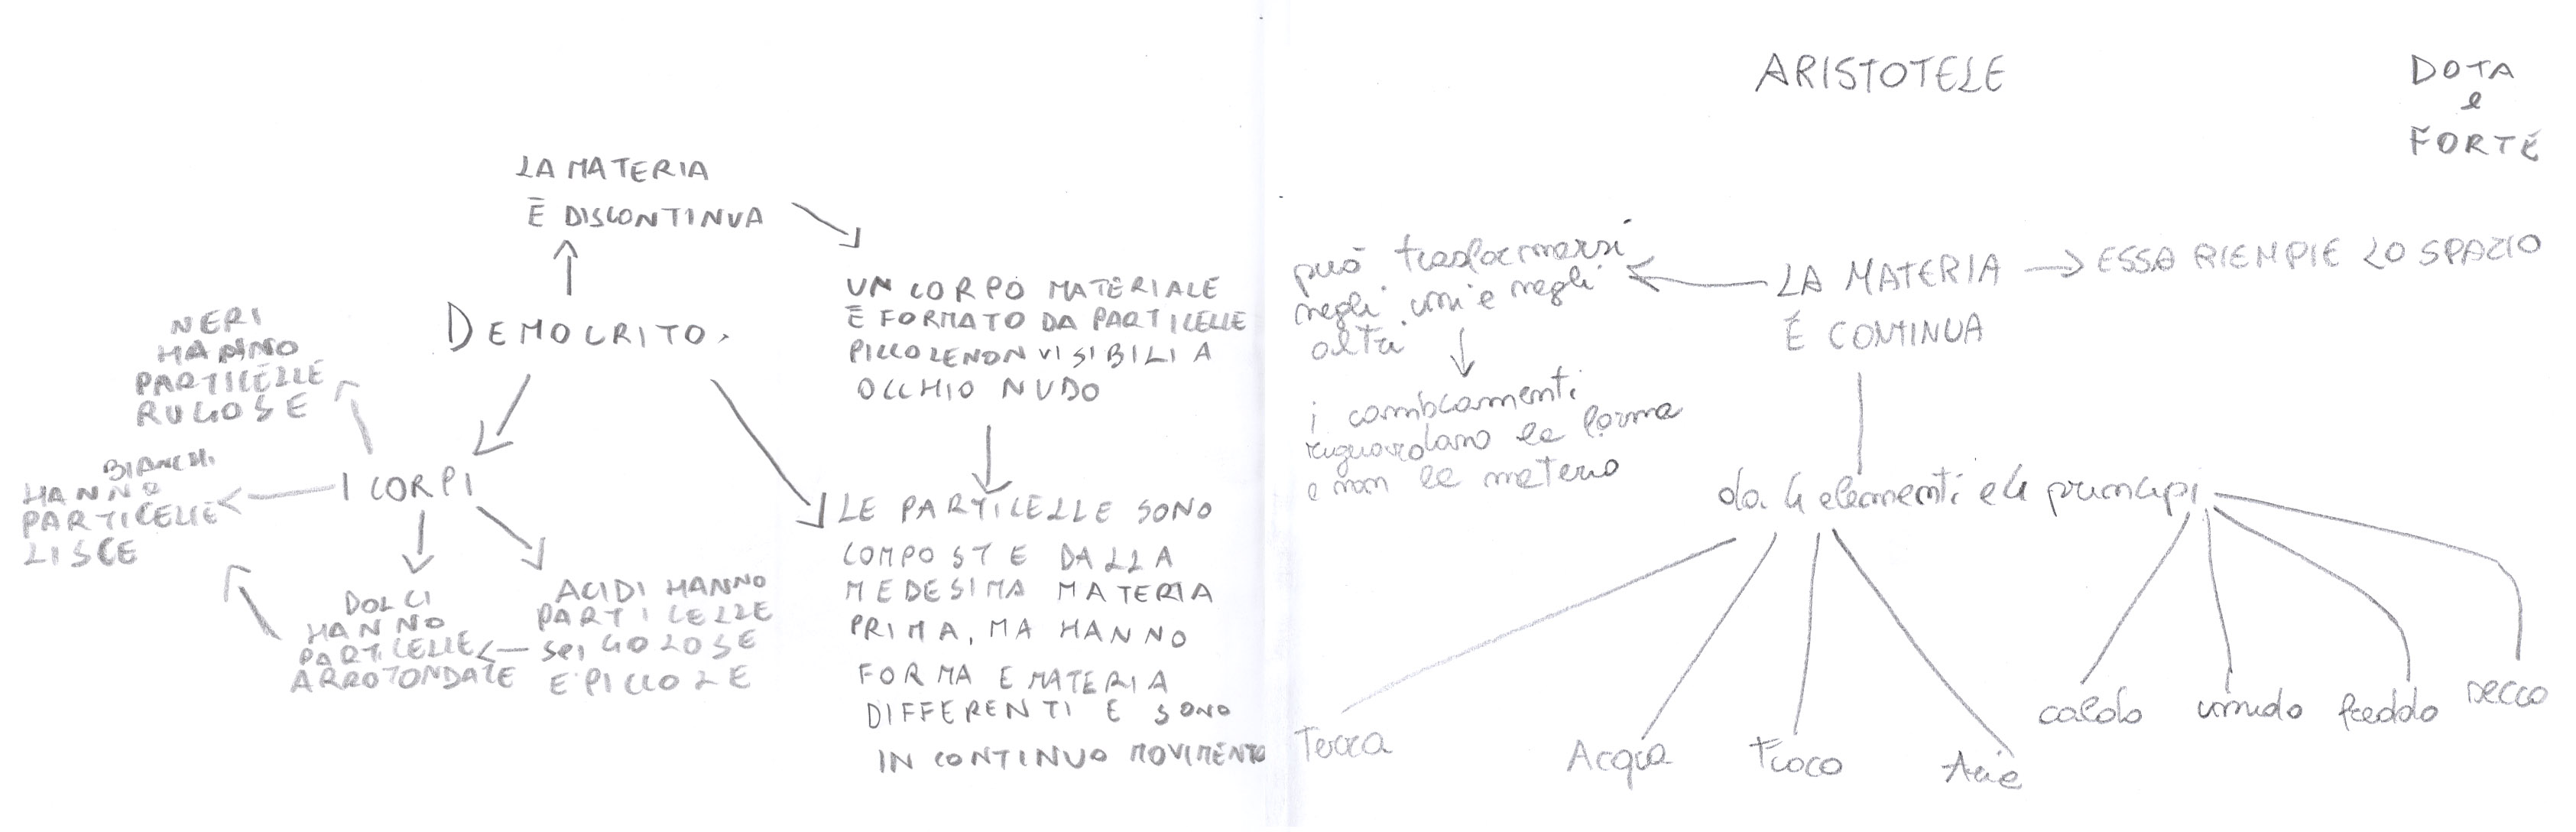 LA MATERIA
È DISCONTINUA
DEMOCRITO
UN CORPO MATERIALE
È FORMATO DA PARTICELLE
PICCOLE NON VISIBILI A
OCCHIO NUDO
NERI
HANNO
PARTICELLE
RUGOSE
I CORPI
BIANCHI
HANNO
PARTICELLE
LISCE
DOLCI
HANNO
PARTICELLE
ARROTONDATE
ACIDI HANNO
PARTICELLE
SPIGOLOSE
E PICCOLE
LE PARTICELLE SONO
COMPOSTE DALLA
MEDESIMA MATERIA
PRIMA, MA HANNO
FORMA E MATERIA
DIFFERENTI E SONO
IN CONTINUO MOVIMENTO
ARISTOTELE
DOTA
e
FORTE
può trasformarsi
negli uni e negli
altri
i cambiamenti
riguardano la forma
e non la materia
LA MATERIA
É CONTINUA
ESSA RIEMPIE LO SPAZIO
da 4 elementi e 4 principi
Terra
Acqua
Fuoco
Aria
caldo
umido
freddo
secco